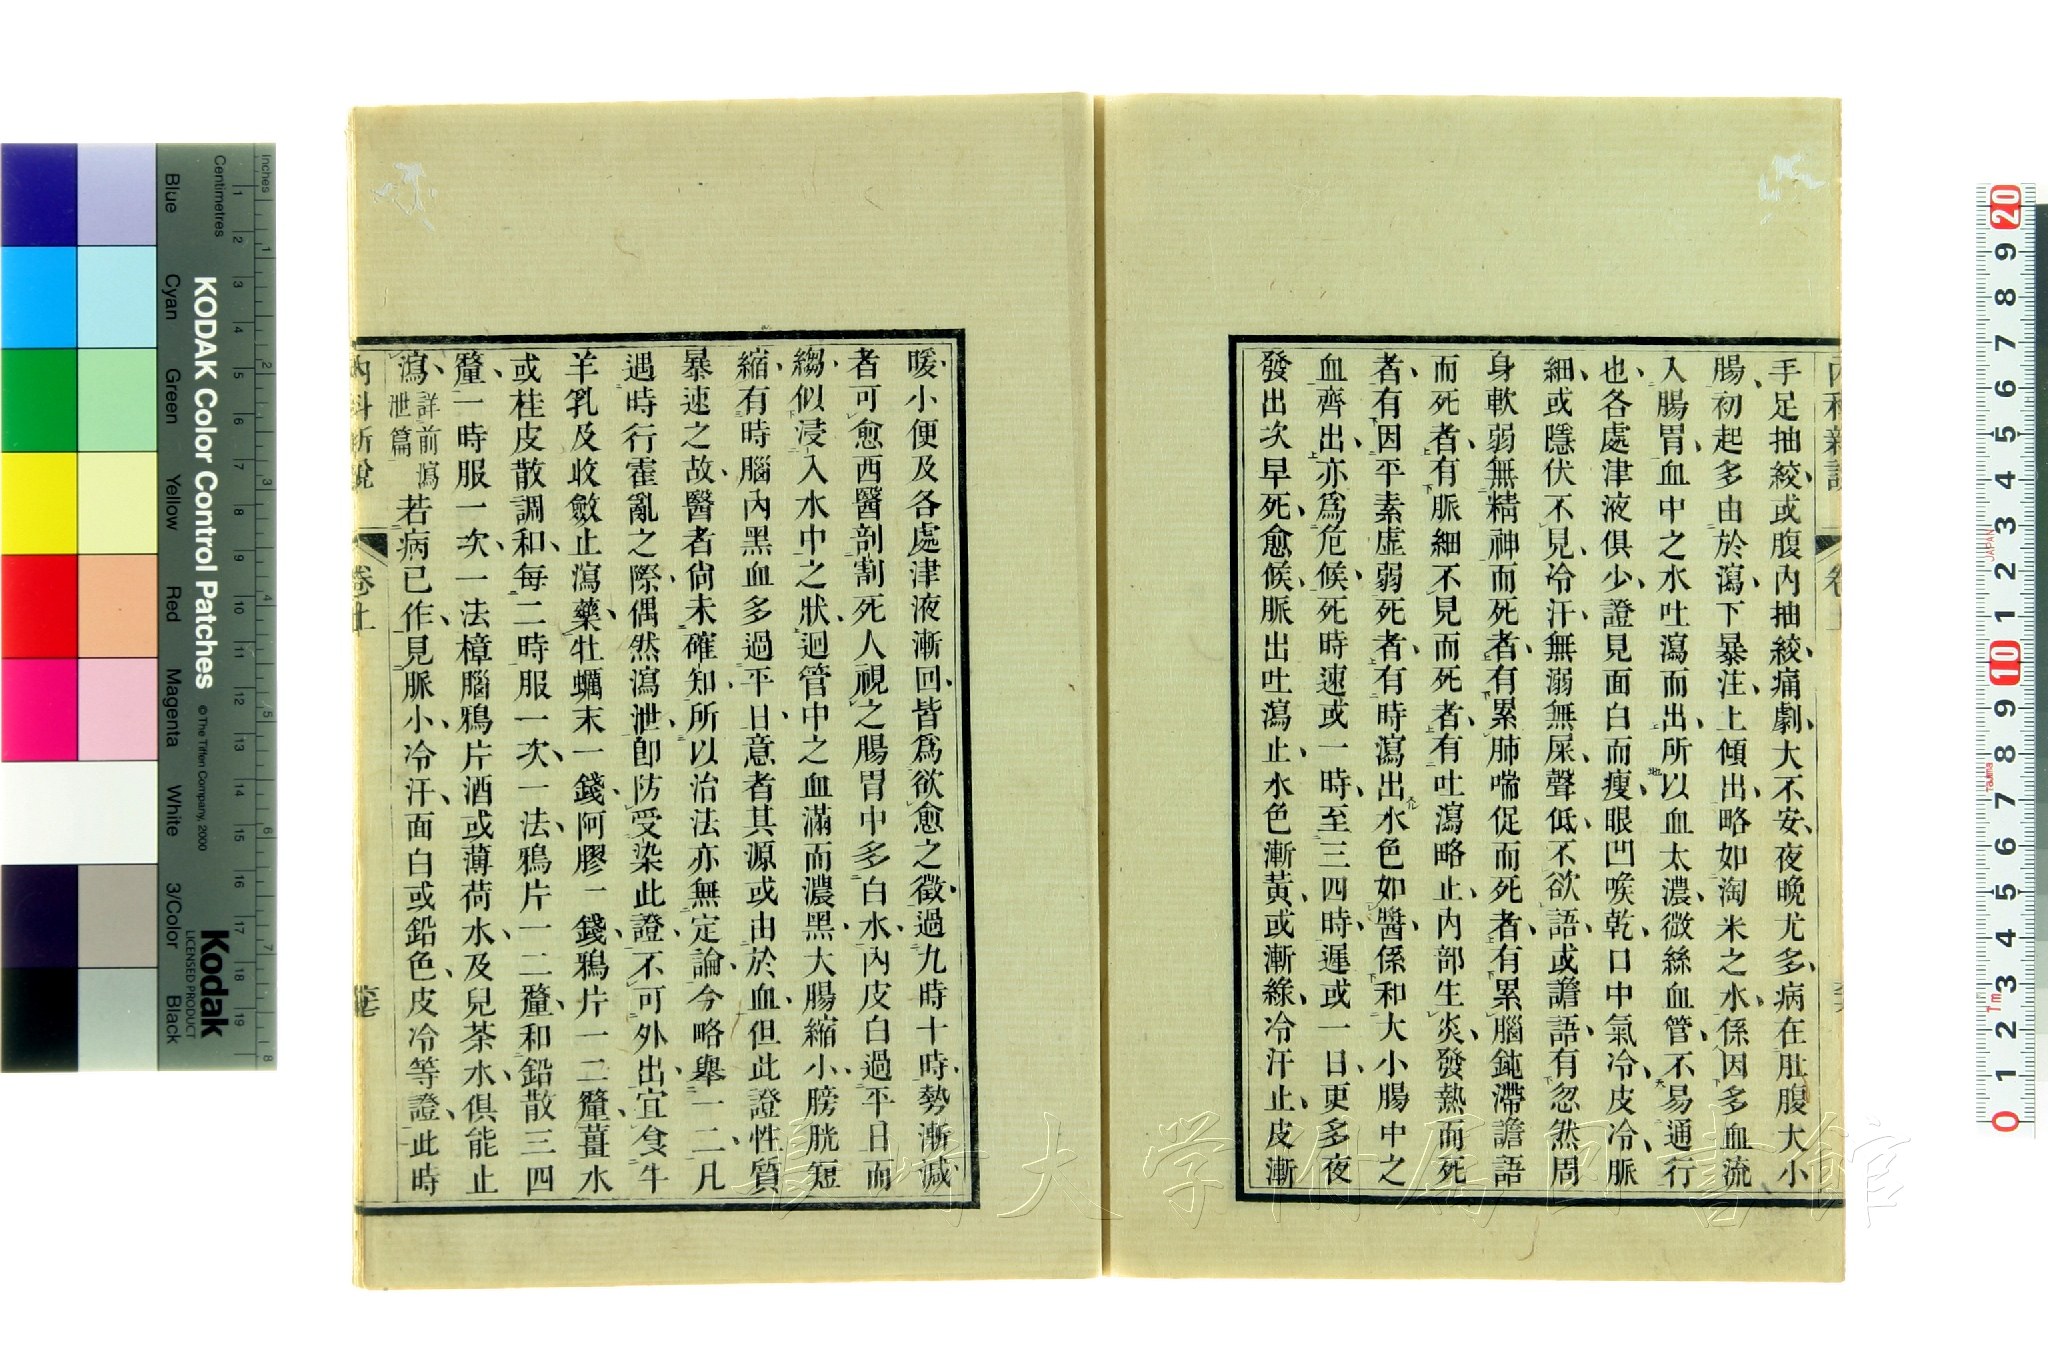 手足抽絞或腹內抽絞痛劇大不安夜晚尤多病在肚腹大小
腸初起多由於瀉下暴注上傾出略如淘米之水係因多血流
入腸胃血中之水吐瀉而出所以血太濃微絲血管不易通行
也各處津液俱少證見面白而瘦眼凹喉乾口中氣冷皮冷脈
細或隱伏不見冷汗無溺無屎聲低不欲語或譫語有忽然周
身軟弱無精神而死者有累肺喘促而死者有累腦鈍滯譫語
而死者有脈細不見而死者有吐瀉略止內部生炎發熱而死
者有因平素虛弱死者有時瀉出水色如醬係和大小腸中之
血齊出亦爲危候死時速或一時至三四時遲或一日更多夜
發出次早死愈候脈出吐瀉止水色漸黃或漸綠冷汗止皮漸
暖小便及各處津液漸回皆爲欲愈之徵過九時十時勢漸減
者可愈西醫剖割死人視之腸胃中多白水內皮白過平日而
縐似浸入水中之狀迴管中之血滿而濃黑大腸縮小膀胱短
縮有時腦內黑血多過平日意者其源或由於血但此證性質
暴速之故醫者尙未確知所以治法亦無定論今略舉一二凡
遇時行霍亂之際偶然瀉泄卽防受染此證不可外出宜食牛
羊乳及收斂止瀉藥牡蠣末一錢阿膠一錢鴉片一二釐薑水
或桂皮散調和每二時服一次一法鴉片一二釐和鉛散三四
釐一時服一次一法樟腦鴉片酒或薄荷水及兒茶水俱能止
瀉詳前瀉泄篇若病已作見脈小冷汗面白或鉛色皮冷等證此時
內科新說
卷上
KODAK Color Control Patches
© The Tiffen Company, 2000
Kodak
LICENSED PRODUCT
Inches
Centimetres
Blue
Cyan
Green
Yellow
Red
Magenta
White
3/Color
Black
長崎大学附属図書館
JAPAN